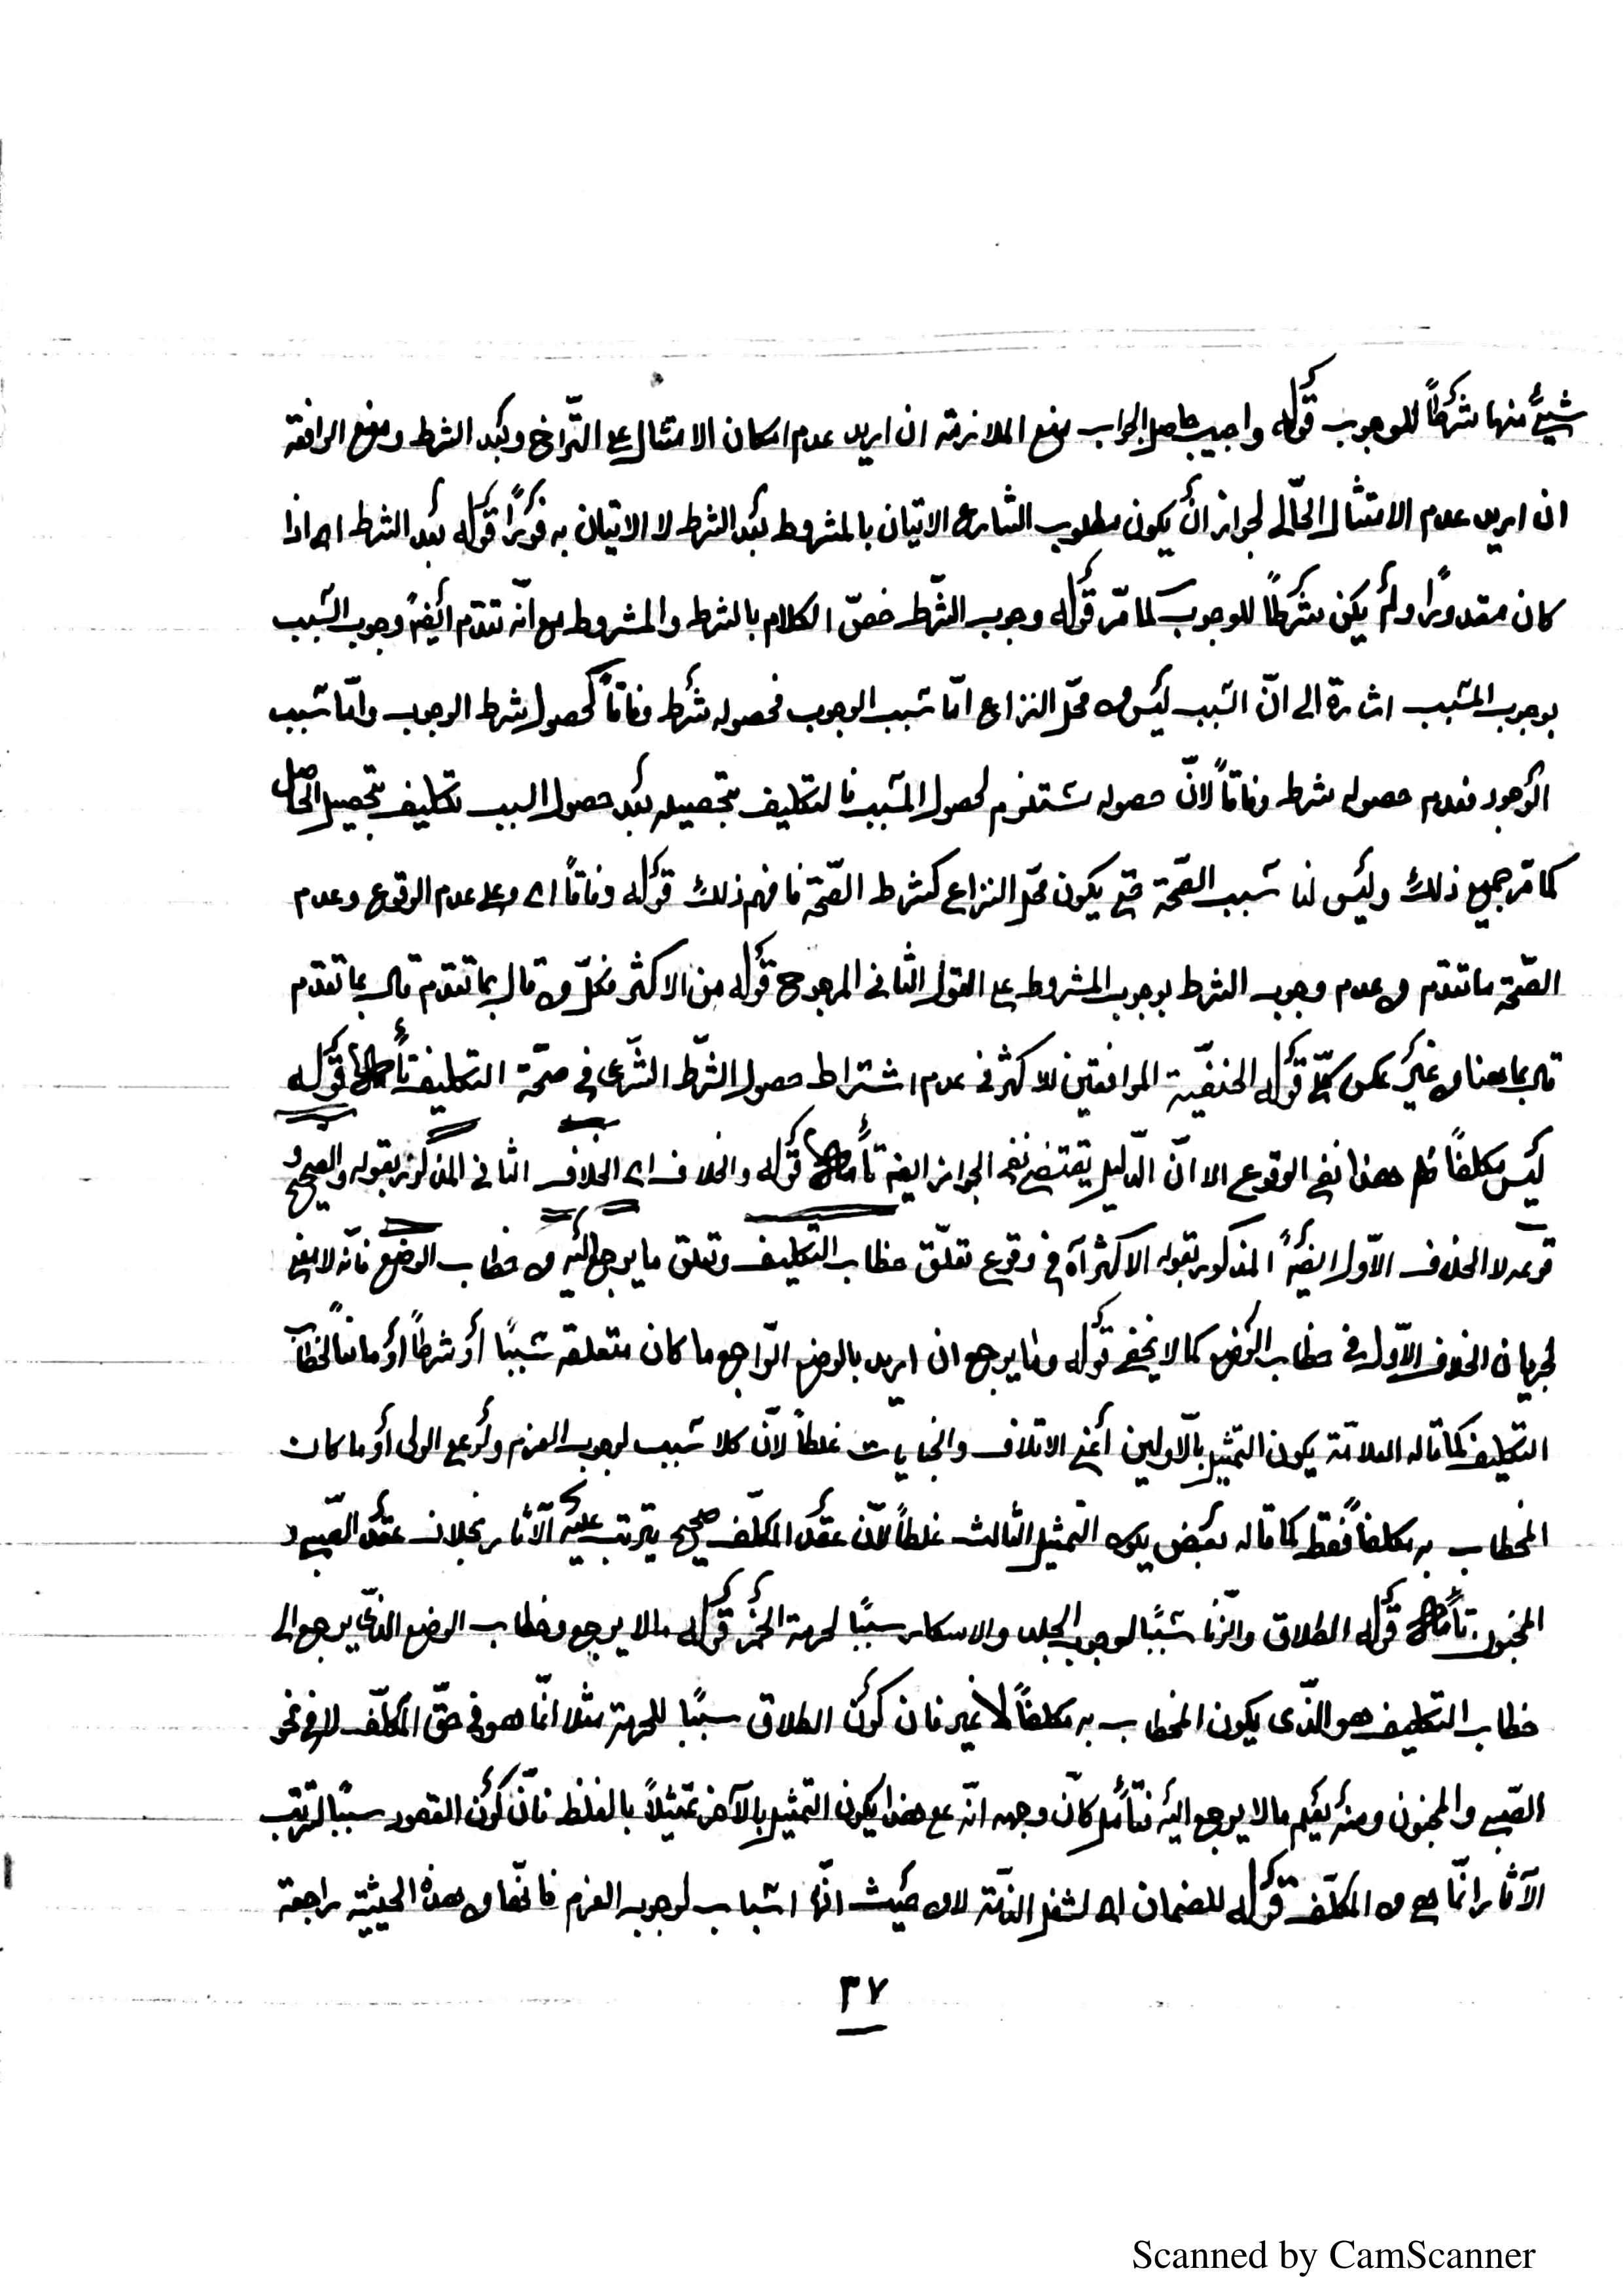 شيئًا منها شرطًا للوجوب قوله واجيب حاصل الجواب بمنع الملازمة ان اريد عدم امكان الامتثال على التّراخي وبعد الشرط ومنع الرافعة
ان اريد عدم الامتثال الحالّي لجواز أن يكون مطلوب الشارع الاتيان بالمشروط بعد الشرط لا الاتيان به فورًا قوله بعد الشرط اى اذا
كان مقدورًا ولم يكن شرطًا للوجوب كما مرّ قوله وجوب الشّرط خصّ الكلام بالشرط والمشروط مع انّه تقدم أيضًا وجوب السّبب
بوجوب المسّبب اشارة الى انّ السّبب ليس من محّل النزاع امّا سبب الوجوب فحصوله شرط وفاقًا كحصول شرط الوجوب وامّا سبب
الوجود فعدم حصوله شرط وفاقًا لانّ حصوله يستلزم لحصول المسّبب فالتكليف بتحصيله بعد حصول السبب تكليف بتحصيل الحاصل
كما مرّ جميع ذلك وليس لنا سبب الصّحة حتى يكون محّل النزاع كشرط الصّحة فافهم ذلك قوله وفاقًا اى وعلى عدم الوقوع وعدم
الصّحة ما تقدم من عدم وجوب الشرط بوجوب المشروط على القول الثانى المرجوح قوله من الاكثر فكلّ من قال بما تقدم قال بما تقدم
قال بما هنا من غير عكس كلّى قوله الحنفيّة الموافقين للاكثر فى عدم اشتراط حصول الشّرط الشّرعى فى صحّة التكليف تأمل قوله
ليس مكلفًا ظاهر هذا نفي الوقوع الا انّ الدّليل يقتضى نفى الجواز ايضا تأمل قوله والخلاف اى الخلاف الثانى المذكور بقوله والصحيح
وقوعه لا الخلاف الاوّل ايضًا المذكور بقوله الاكثر آه فى وقوع تعلّق خطاب التكليف وتعلق ما يرجع اليه من خطاب الوضع فانّه لا معنى
لجريان الخلاف الاوّل فى خطاب الوضع كما لا يخفى قوله وما يرجع ان اريد بالوضع الرّاجع ما كان متعلقه سببًا أو شرطًا أو مانعًا لخطاب
التكليف كما قاله العلامة يكون التمثيل بالاولين أعنى الاتلاف والجنايات غلطًا لانّ كلا سبب لوجوب الغرم ولو على الولى أو ما كان
المخطاب به مكلفًا فقط كما قاله بعض يكون التمثيل الثالث غلطًا لانّ عقد المكلّف صحيح يترتب عليه الآثار بخلاف عقد الصّبى و
المجنون تأمل قوله الطلاق والزنا سببًا لوجوب الجلد والاسكار سببًا لحرمة الخمر قوله مالا يرجع وخطاب الوضع الذّى يرجع الى
خطاب التكليف هو الذّى يكون المخطاب به مكلفًا لا غير فان كون الطلاق سببًا للحرمة مثلا انّما هو فى حقّ المكلّف لا فى نحو
الصّبى والمجنون ومنه يعلم مالا يرجع اليه فتأمل كانّ وجهه انّه على هذا يكون التمثيل بالآخر تمثيلاً بالغلط فانّ كون العقود سببًا لترتب
الآثار انّما هى من المكلّف قوله للضمان اى لشغل الذمّة لا من حيث انّها اسباب لوجوب الغرم فانّها من هذه الحيثية راجعة
٣٧
Scanned by CamScanner